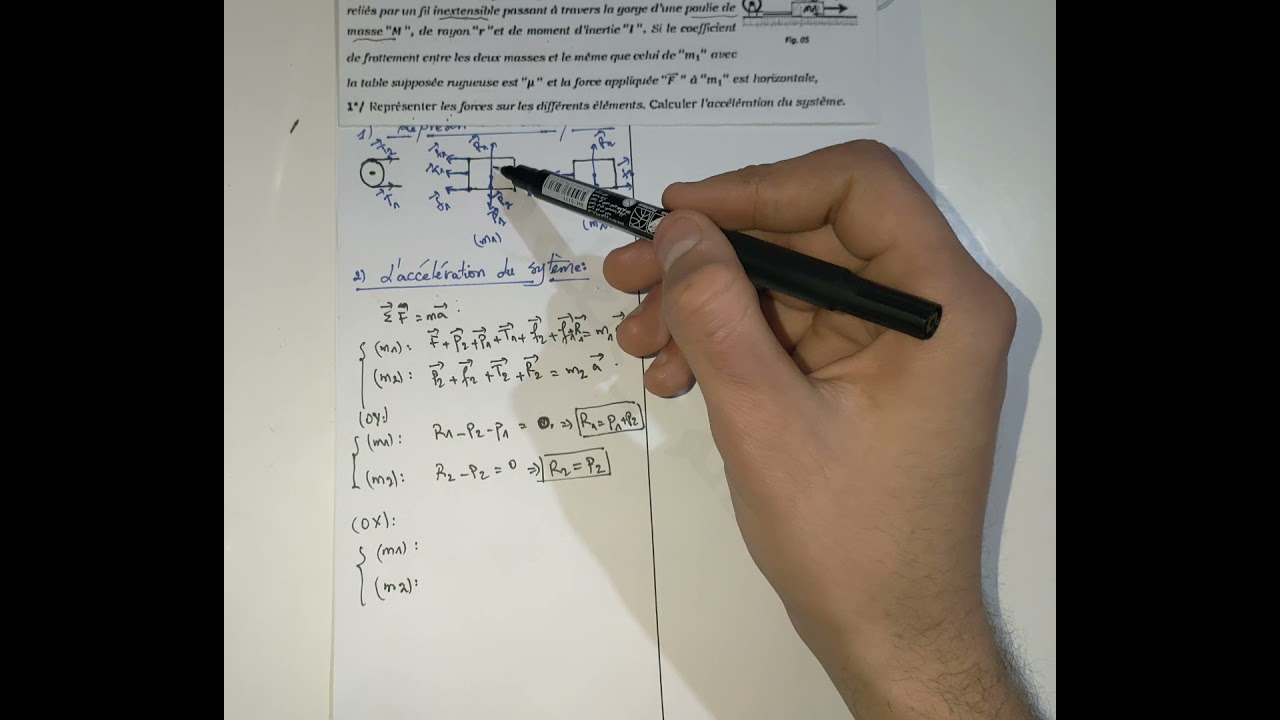 reliés par un fil inextensible passant à travers la gorge d'une poulie de
masse "M", de rayon "r" et de moment d'inertie "I". Si le coefficient
de frottement entre les deux masses et le même que celui de "m₁" avec
la table supposée rugueuse est "μ" et la force appliquée "F⃗" à "m₁" est horizontale,
1°/ Représenter les forces sur les différents éléments. Calculer l'accélération du système.
Fig. 05
1)
T⃗₂
T⃗₁
(m₁)
2) L'accélération du système:
ΣF⃗ = ma⃗ :
(m₁): F⃗ + P⃗₂ + P⃗₁ + T⃗₁ + f⃗₂ + f⃗₁ + R⃗₁ = m₁
(m₂): P⃗₂ + f⃗₂ + T⃗₂ + R⃗₂ = m₂ a⃗
(OY):
(m₁): R₁ - P₂ - P₁ = 0. ⇒ R₁ = P₁ + P₂
(m₂): R₂ - P₂ = 0 ⇒ R₂ = P₂
(OX):
(m₁):
(m₂):